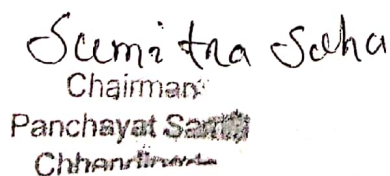 Sumitra Saha
Chairman
Panchayat Samiti